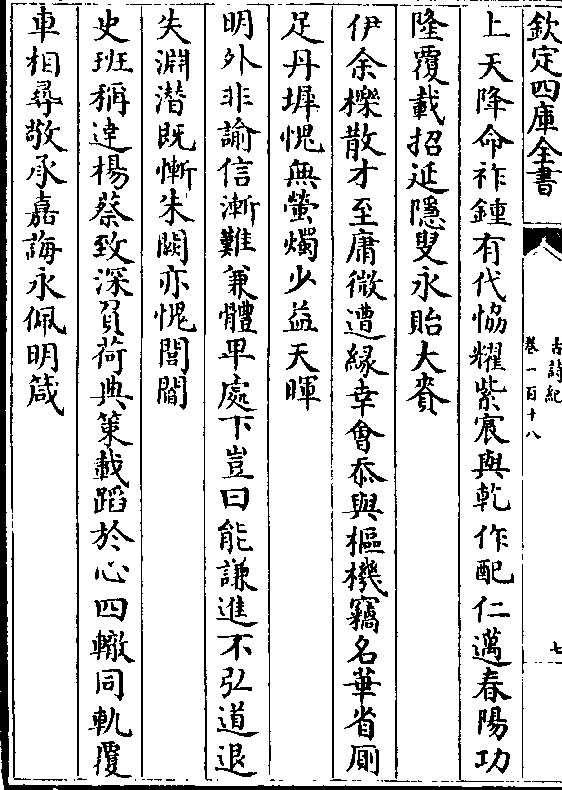 欽定四庫全書
古詩紀
卷一百十八
七
上天降命祚鍾有代恊耀紫宸與乾作配仁邁春陽功
隆覆載招延隱叟永貽大賚
伊余櫟散才至庸微遭緣幸會忝與樞機竊名華省厠
足丹墀愧無螢燭少益天暉
明外非諭信漸難兼體卑處下豈曰能謙進不弘道退
失淵潜既慚朱闕亦愧閭閻
史班稱達楊蔡致深負荷典策載蹈於心四轍同軌覆
車相尋敬承嘉誨永佩明箴